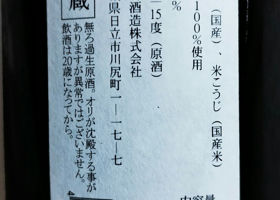 (国産)、米こうじ(国産米)
100%使用
%
15度(原酒)
酒造株式会社
県日立市川尻町一―一七―七
蔵
無ろ過生原酒。オリが沈殿する事が
ありますが異常ではございません。
飲酒は20歳になってから。